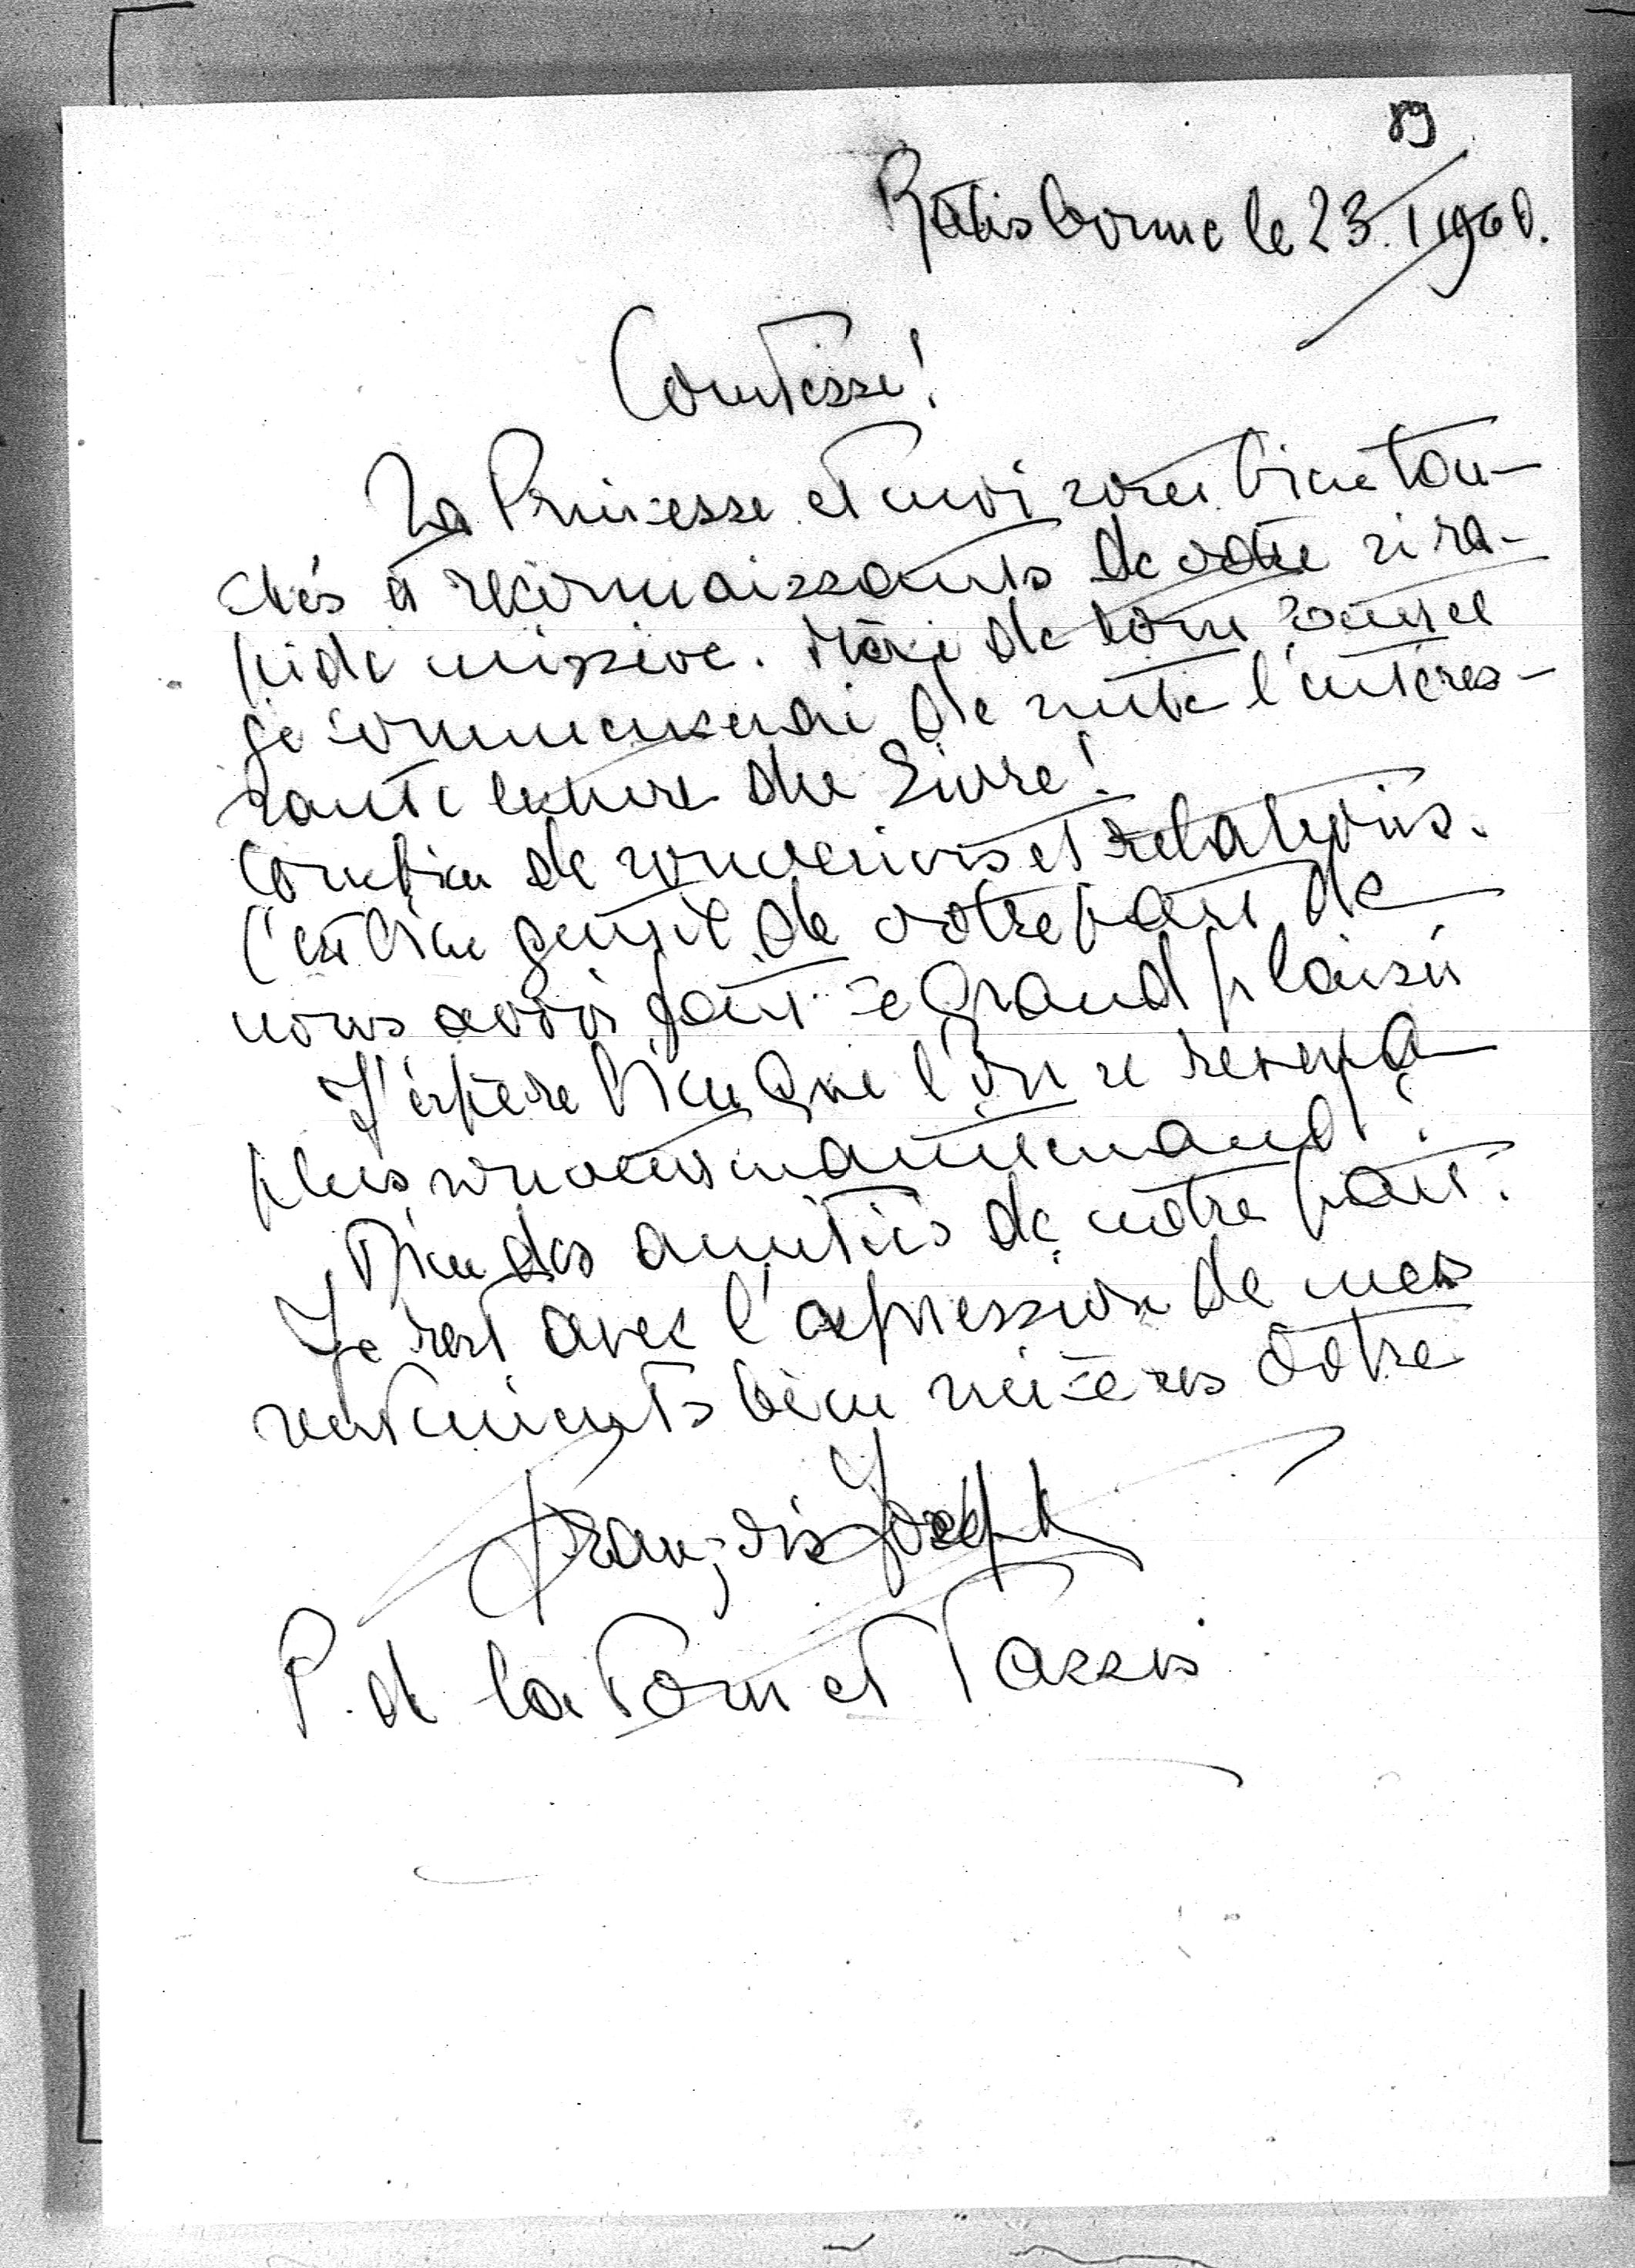 89
Ratisbonne le 23.I 1960.
Comtesse!
La Princesse et moi somes bien tou-
chés et reconnaissants de votre si ra-
pide missive. Merci de tout
je commencerai de suite l'intéres-
sante lecture du Livre!
Combien de souvenirs et relations.
C'est bien gentil de votre part de
nous avoir fait ce Grand plaisir
J'éspère bien que l'on se reverra
plus souvent maintenand!
Bien des amitiés de notre part.
Je rest avec l'expression de mes
sentiments bien sincères Votre
François Joseph
P. de la Tour et Tassis